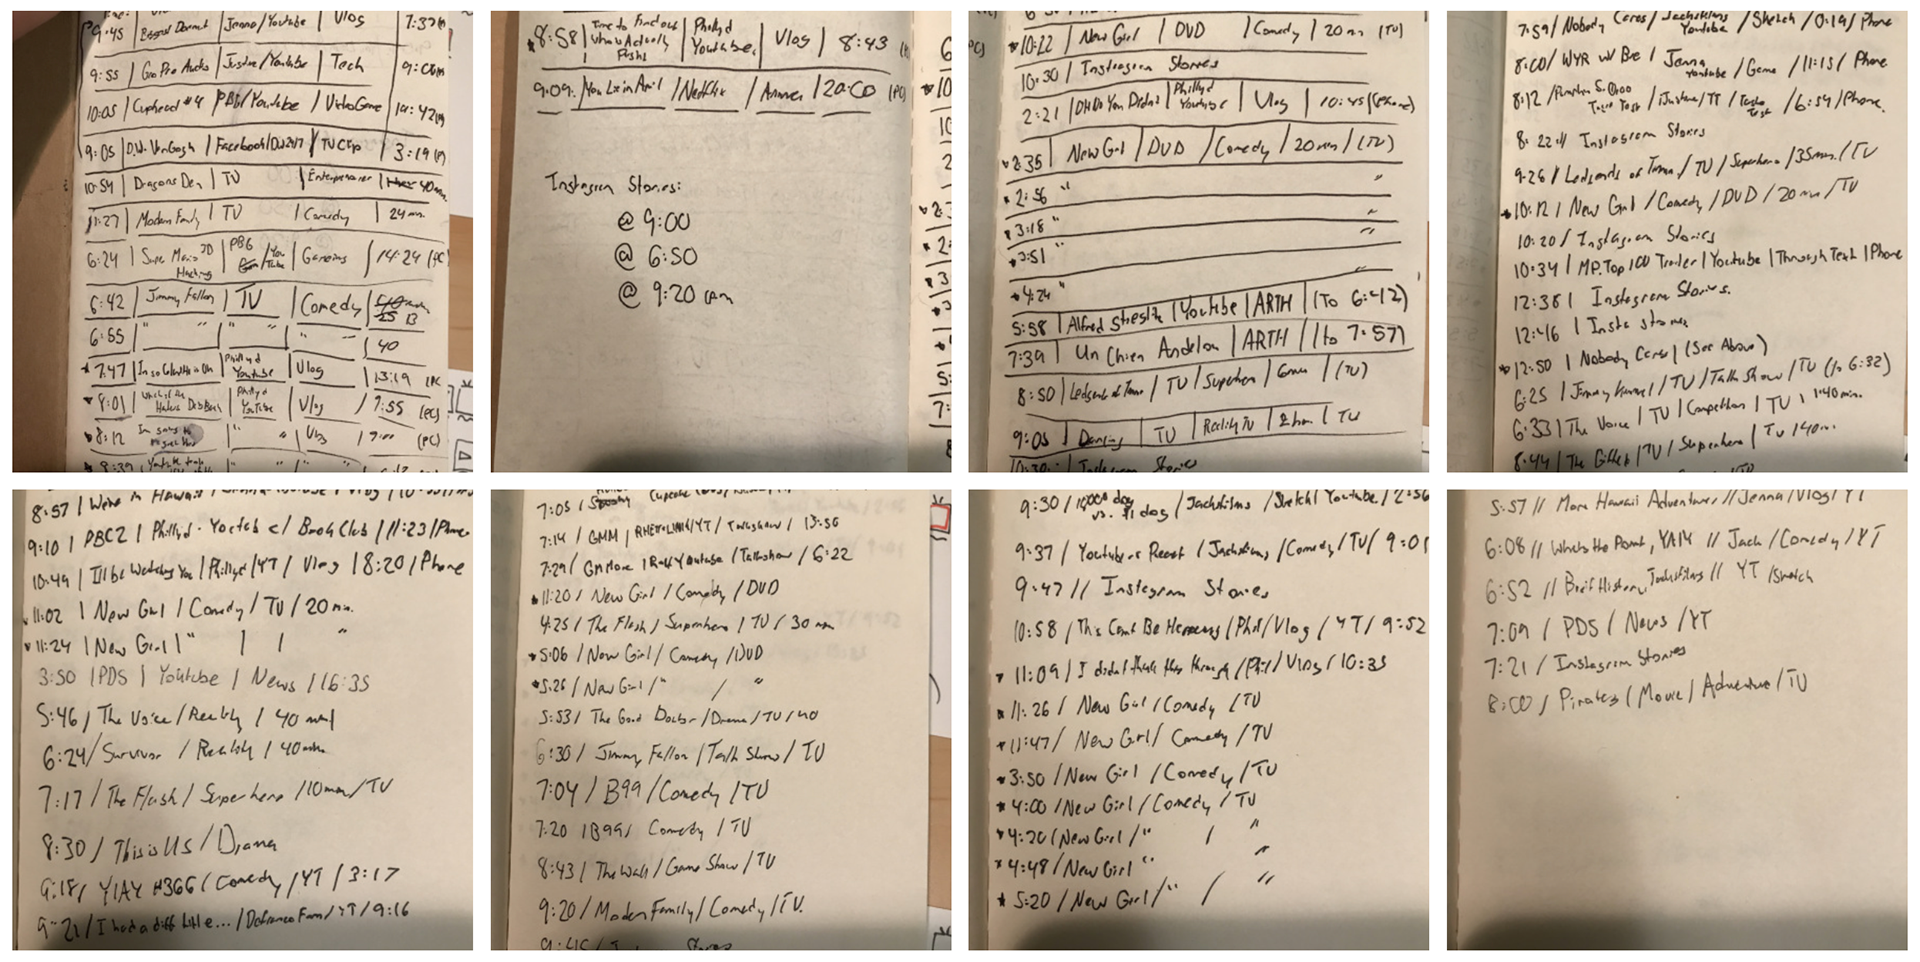 9:45 | Biggest Donut | Jenna/Youtube | Vlog | 7:37
9:55 | GoPro Audio | Justine/Youtube | Tech | 9:
10:05 | Cuphead #4 | PBG/Youtube | VideoGame | 14:42
9:05 | D.W. Van Gogh | Facebook/ | TV Clip | 3:19
10:54 | Dragons Den | TV | Entrepreneur | 40 min.
11:27 | Modern Family | TV | Comedy | 24 min.
6:24 | Super Mario 3D Hacking | PBG /YouTube | Gameing | 14:24 (PC
6:42 | Jimmy Fallon | TV | Comedy | 25 13
6:55 | " " | " " | " | 40
7:47 | | Phillyd Youtube | Vlog | 13:19 (PC
8:01 | | Phillyd Youtube | Vlog / 7:55 (PC)
8:12 | | " " | Vlog | (PC)
8:39 | " " | "
8:58 | Time to find out who Actually | Phillyd Youtube | Vlog | 8:43
9:09 | | Netflix | | 20:00 (PC)
Instagram Stories:
@ 9:00
@ 6:50
@ 9:20 am
10:22 | New Girl | DVD | Comedy | 20 min (TV)
10:30 | Instagram Stories
2:21 | OH No You Didn't | Phillyd Youtube | Vlog | 10:45 (Phone)
2:35 | New Girl | DVD | Comedy | 20 min | (TV)
2:56 " "
3:18 " "
3:51 " "
4:24 " "
5:58 | Alfred | Youtube | ARTH | (To 6:42)
7:39 | Un Chien Andelou | ARTH | (to 7:57)
8:50 | Ledgends of Tomm / TV | Superhero | | (TV)
9:05 | Dancing | TV | Reality TV | 2 hour | TV
10:30 | Instagram Stories
7:59 / Nobody Cares / Jacksfilms Youtube / Sketch / 0:19 / Phone
8:00 / WYR w/ | Jenna Youtube / Game / 11:15 / Phone
8:12 / Taste Test / iJustine / YT / Taste Test / 6:54 / Phone.
8:22 // Instagram Stories
9:26 / Ledgends of Tomm / TV / Superhero / 35min. / TV
10:12 / New Girl / Comedy / DVD / 20 min / TV
10:20 / Instagram Stories
10:34 | MP. Top 100 Trailer | Youtube | Through Text | Phone
12:38 | Instagram Stories.
12:46 | Insta stories
12:50 | Nobody Cares | (See Above)
6:25 | Jimmy Kimmel / TV / Talk Show / TV (to 6:32)
6:33 | The Voice | TV | Competition | TV | 1:40 min.
8:44 | The Gifted | TV / Superhero | TV / 40m.
8:57 | We're in Hawaii / Vlog /
9:10 | PBC2 | Phillyd - Youtube / Book Club | 11:23 / Phone
10:49 | I'll be Watching You | Phillyd / YT / Vlog | 8:20 / Phone
11:02 | New Girl / Comedy / TV / 20 min.
11:24 | New Girl | " | | "
3:50 | PDS | Youtube | News / 16:35
5:46 / The Voice / Reality / 40 min
6:24 / Survivor / Reality / 40 min
7:17 / The Flash / Superhero / 10 min / TV
8:30 / This is Us / Drama
9:18 / YIAY #366 / Comedy / YT / 3:17
9:21 / I had a diff title... / Defranco Fam / YT / 9:16
7:05 / Cupcake
7:14 / GMM / RHETT+LINK / YT / Talkshow / 13:56
7:29 / GMMore | R+L Youtube / Talkshow / 6:22
11:20 / New Girl / Comedy / DVD
4:25 / The Flash / Superhero / TV / 30 min
5:06 / New Girl / Comedy / DVD
5:26 / New Girl / " / "
5:53 / The Good Doctor / Drama / TV / 40
6:30 / Jimmy Fallon / Talk Show / TV
7:04 / B99 / Comedy / TV
7:20 / B99 / Comedy / TV
8:43 / The Wall / Game Show / TV
9:20 / Modern Family / Comedy / TV.
9:45 / Stories
9:30 / 10000 dog vs. $1 dog / Jacksfilms / Sketch / Youtube / 2:56
9:37 / Youtubers React / Jacksfilms / Comedy / TV / 9:01
9:47 // Instagram Stories
10:58 / This Can't Be Happening / Phil / Vlog / YT / 9:52
11:09 / I didn't think this through / Phil / Vlog / 10:35
11:26 / New Girl / Comedy / TV
11:47 / New Girl / Comedy / TV
3:50 / New Girl / Comedy / TV
4:00 / New Girl / Comedy / TV
4:20 / New Girl / " / "
4:48 / New Girl " "
5:20 / New Girl / " / "
5:57 // More Hawaii Adventures // Jenna / Vlog / YT
6:08 // Whats the Point, YIAY // Jack / Comedy / YT
6:52 // Breif History, Jacksfilms // YT / Sketch
7:09 / PDS / News / YT
7:21 / Instagram Stories
8:00 / Pirates / Movie / Adventure / TV